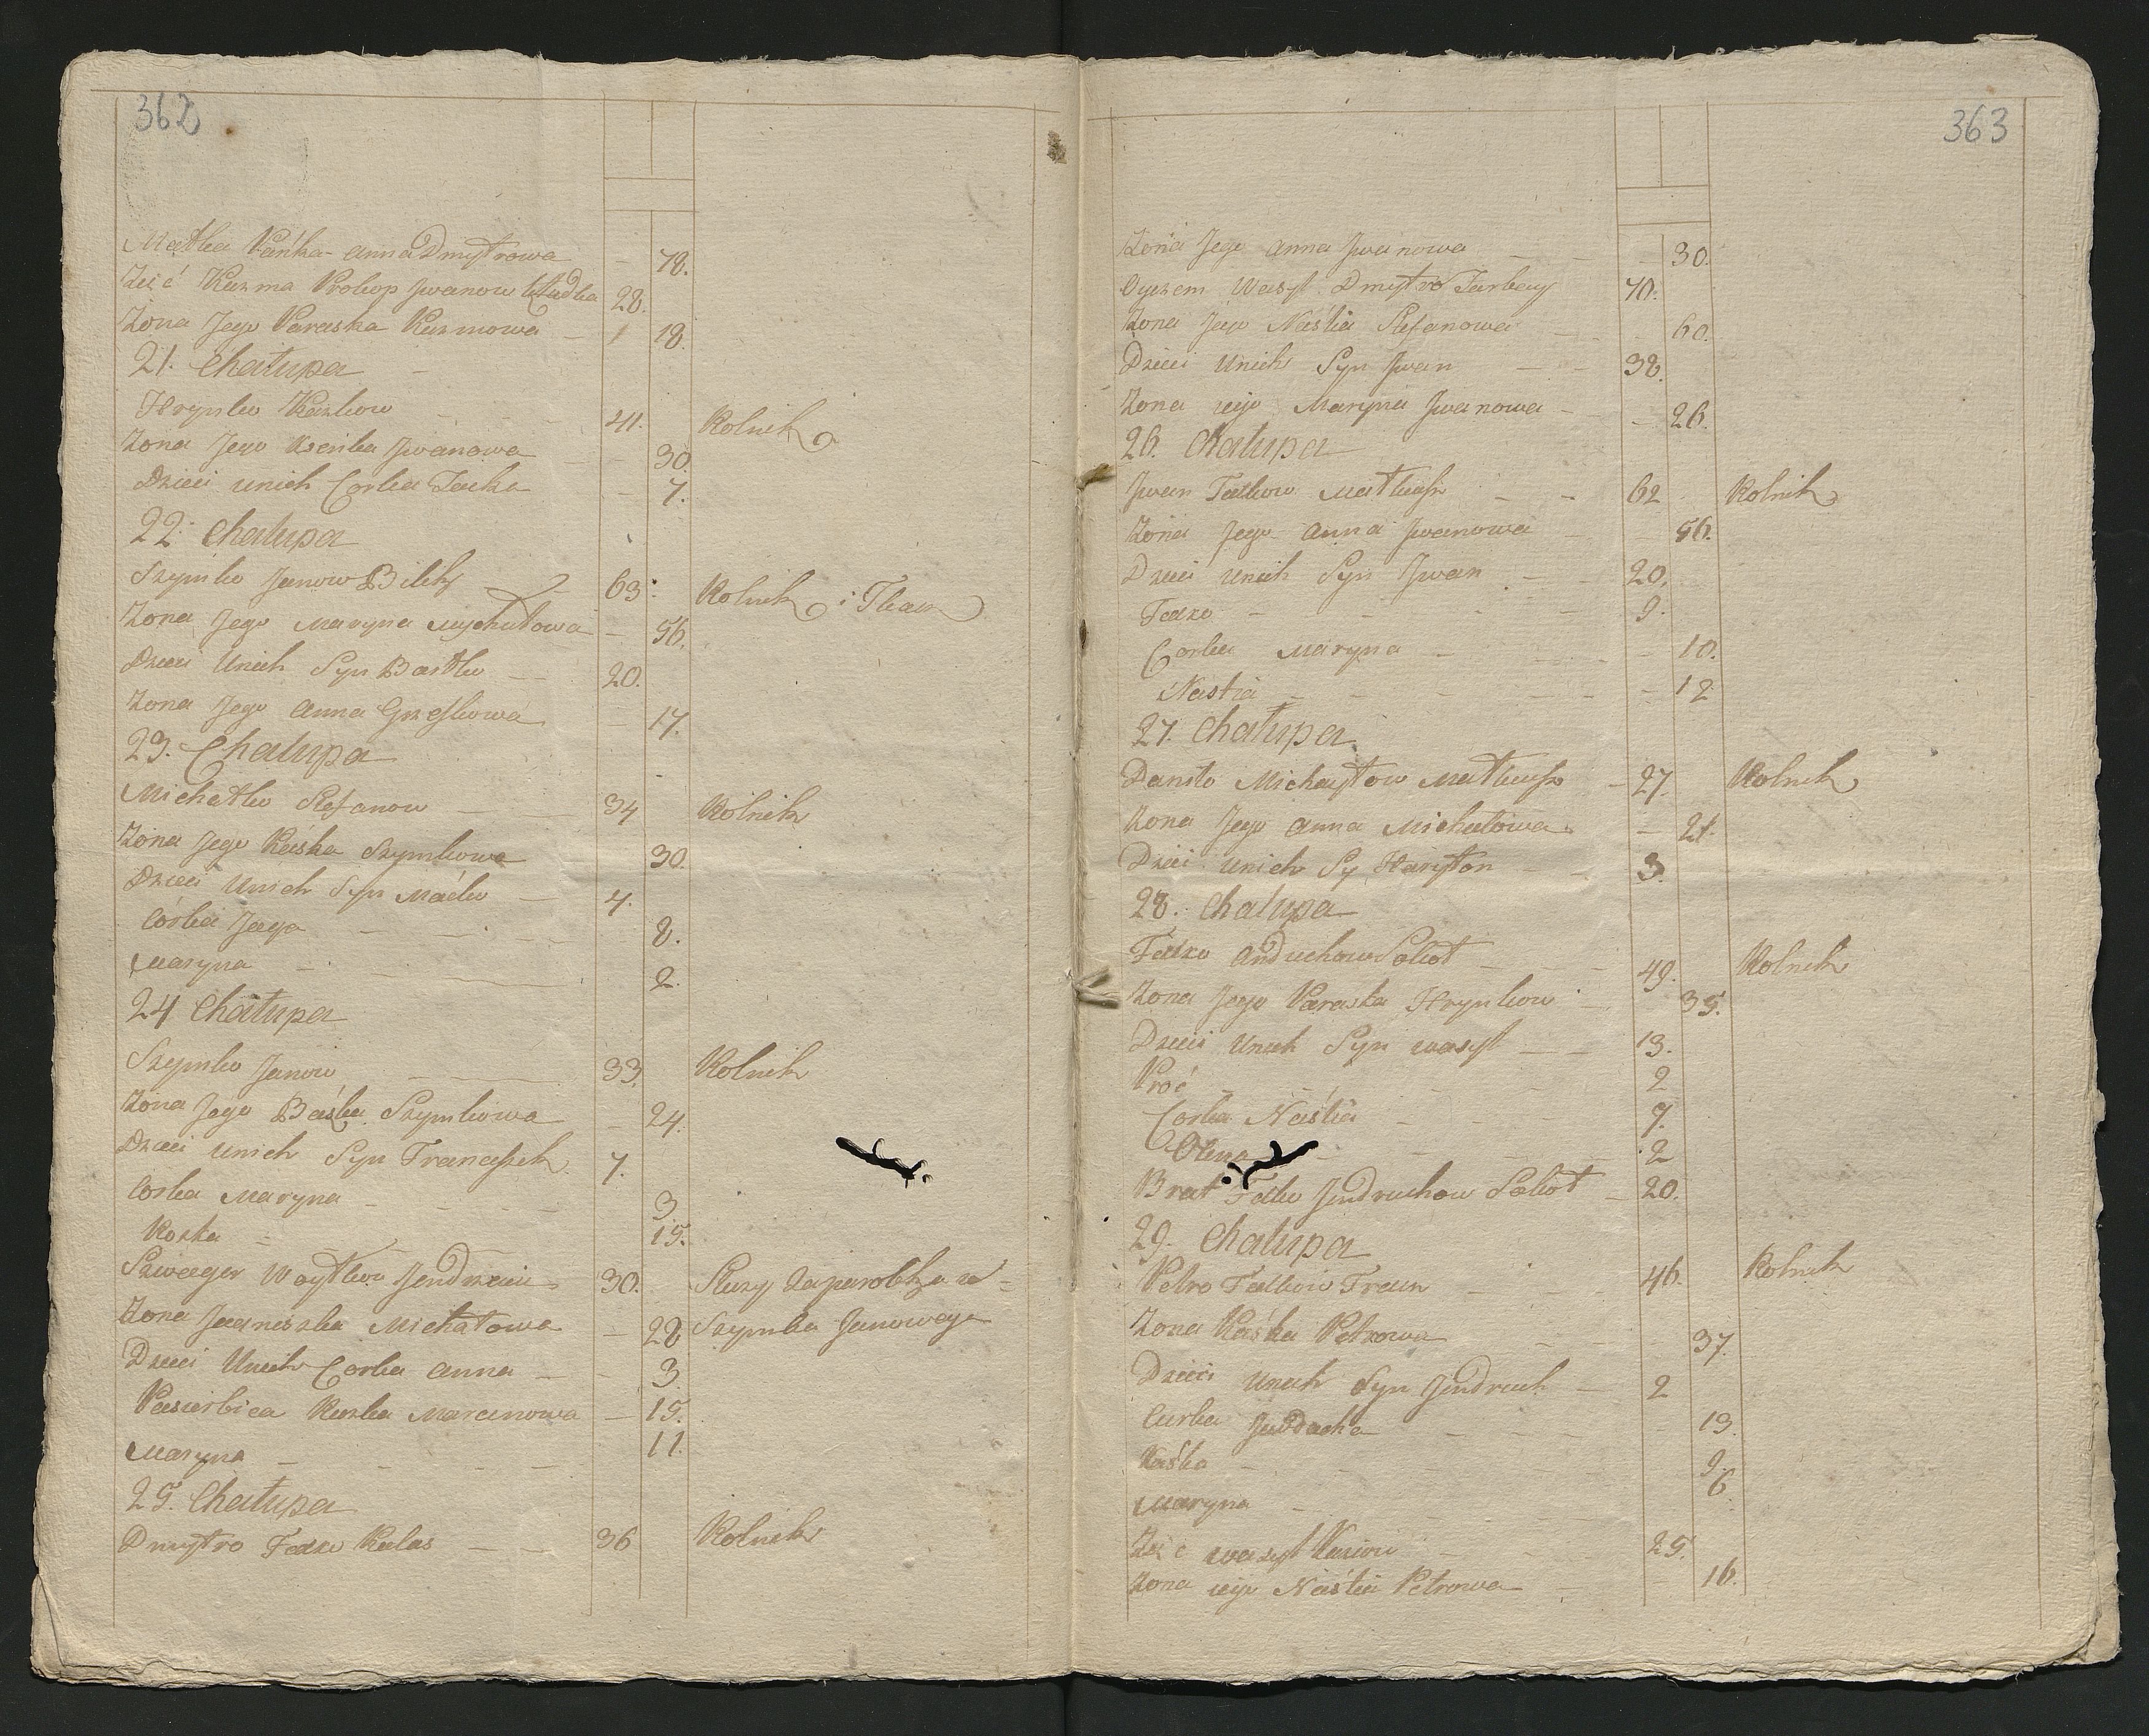 362
Matka Vańka Anna Dmytrowa - 78.
Zięć Kuzma Prokop Jwanow 28.
Zona Jego Paraska Kuzmowa - 18.
21. Chałupa
Hrynko Kaźkow - - 41. Rolnik
Zona Jego Kseńka Jwanowa - 30.
Dzieci unich Corka Jacka - 7.
22. Chałupa
Szymko Janow Bilek - 63. Rolnik i Tkacz
Zona Jego Maryna Mychałowa - 56.
Dzieci Unich Syn Bartko - 20.
Zona Jego Anna Grzeskowa - 17.
23. Chałupa
Michałko Stefanow - 34 Rolnik
Zona Jego Kaśka Szymkowa 30.
Dzieci Unich Syn Maćko - 4.
Córka Jaga - - 8.
Maryna - - 2.
24 Chałupa
Szymko Janow - - 33. Rolnik
Zona Jego Baśka Szymkowa - 24.
Dzieci unich Syn Franciszek 7.
Corka Maryna - - 3.
Rozka - - 15.
Szwager Woytko Jendrzeiu 30. Służy za parobka u -
Zona Jagniszka Michałowa - 28 Szymka Janowego
Dzieci Unich Corka Anna - - 3.
Pasierbica Marcinowa - 15.
Maryna - - 11.
25. Chałupa
Dmytro Fedko Kulas - - 36 Rolnik
363
Zona Jego Anna Jwanowa - - 30.
Oyczem Wasyl Dmytro 70.
Zona Jego Naśtia Stefanowa - 60.
Dzieci Unich Syn Jwan - - 38.
Zona iego Maryna Jwanowa - - 26.
26. Chałupa
Jwan Fedkow Matkusz - - 62 Rolnik
Zona Jego Anna Jwanowa - 56.
Dzieci Unich Syn Jwan - 20.
Fedko - - 9.
Corka Maryna - - 10.
Nastia - - 12
27. Chałupa
Danło Michayłow Matkusz - 27. Rolnik
Zona Jego Anna Michałowa - 21.
Dzieci Unich Sy Haryton - - 3.
28. Chałupa
Fedko Anduchow Sokot - - 49. Rolnik
Zona Jego Paraska Hrynkow - 35.
Dzieci Unich Syn Wasyl - - 13.
Proć - - 2
Corka Naśtia - - 7.
Olena - - 2
Brat Fedko Jendruchow Sokot - 20.
29. Chałupa
Petro Fedkow - - 46. Rolnik
Zona Kaśka Petrowa - - 37.
Dzieci Unich Syn Jendruch - 2
Curka - - 13.
Kaśka - - 9.
Maryna - - 6.
Zięć Wasyl - - 25.
Zona iego Naśtia Petrowa - 16.